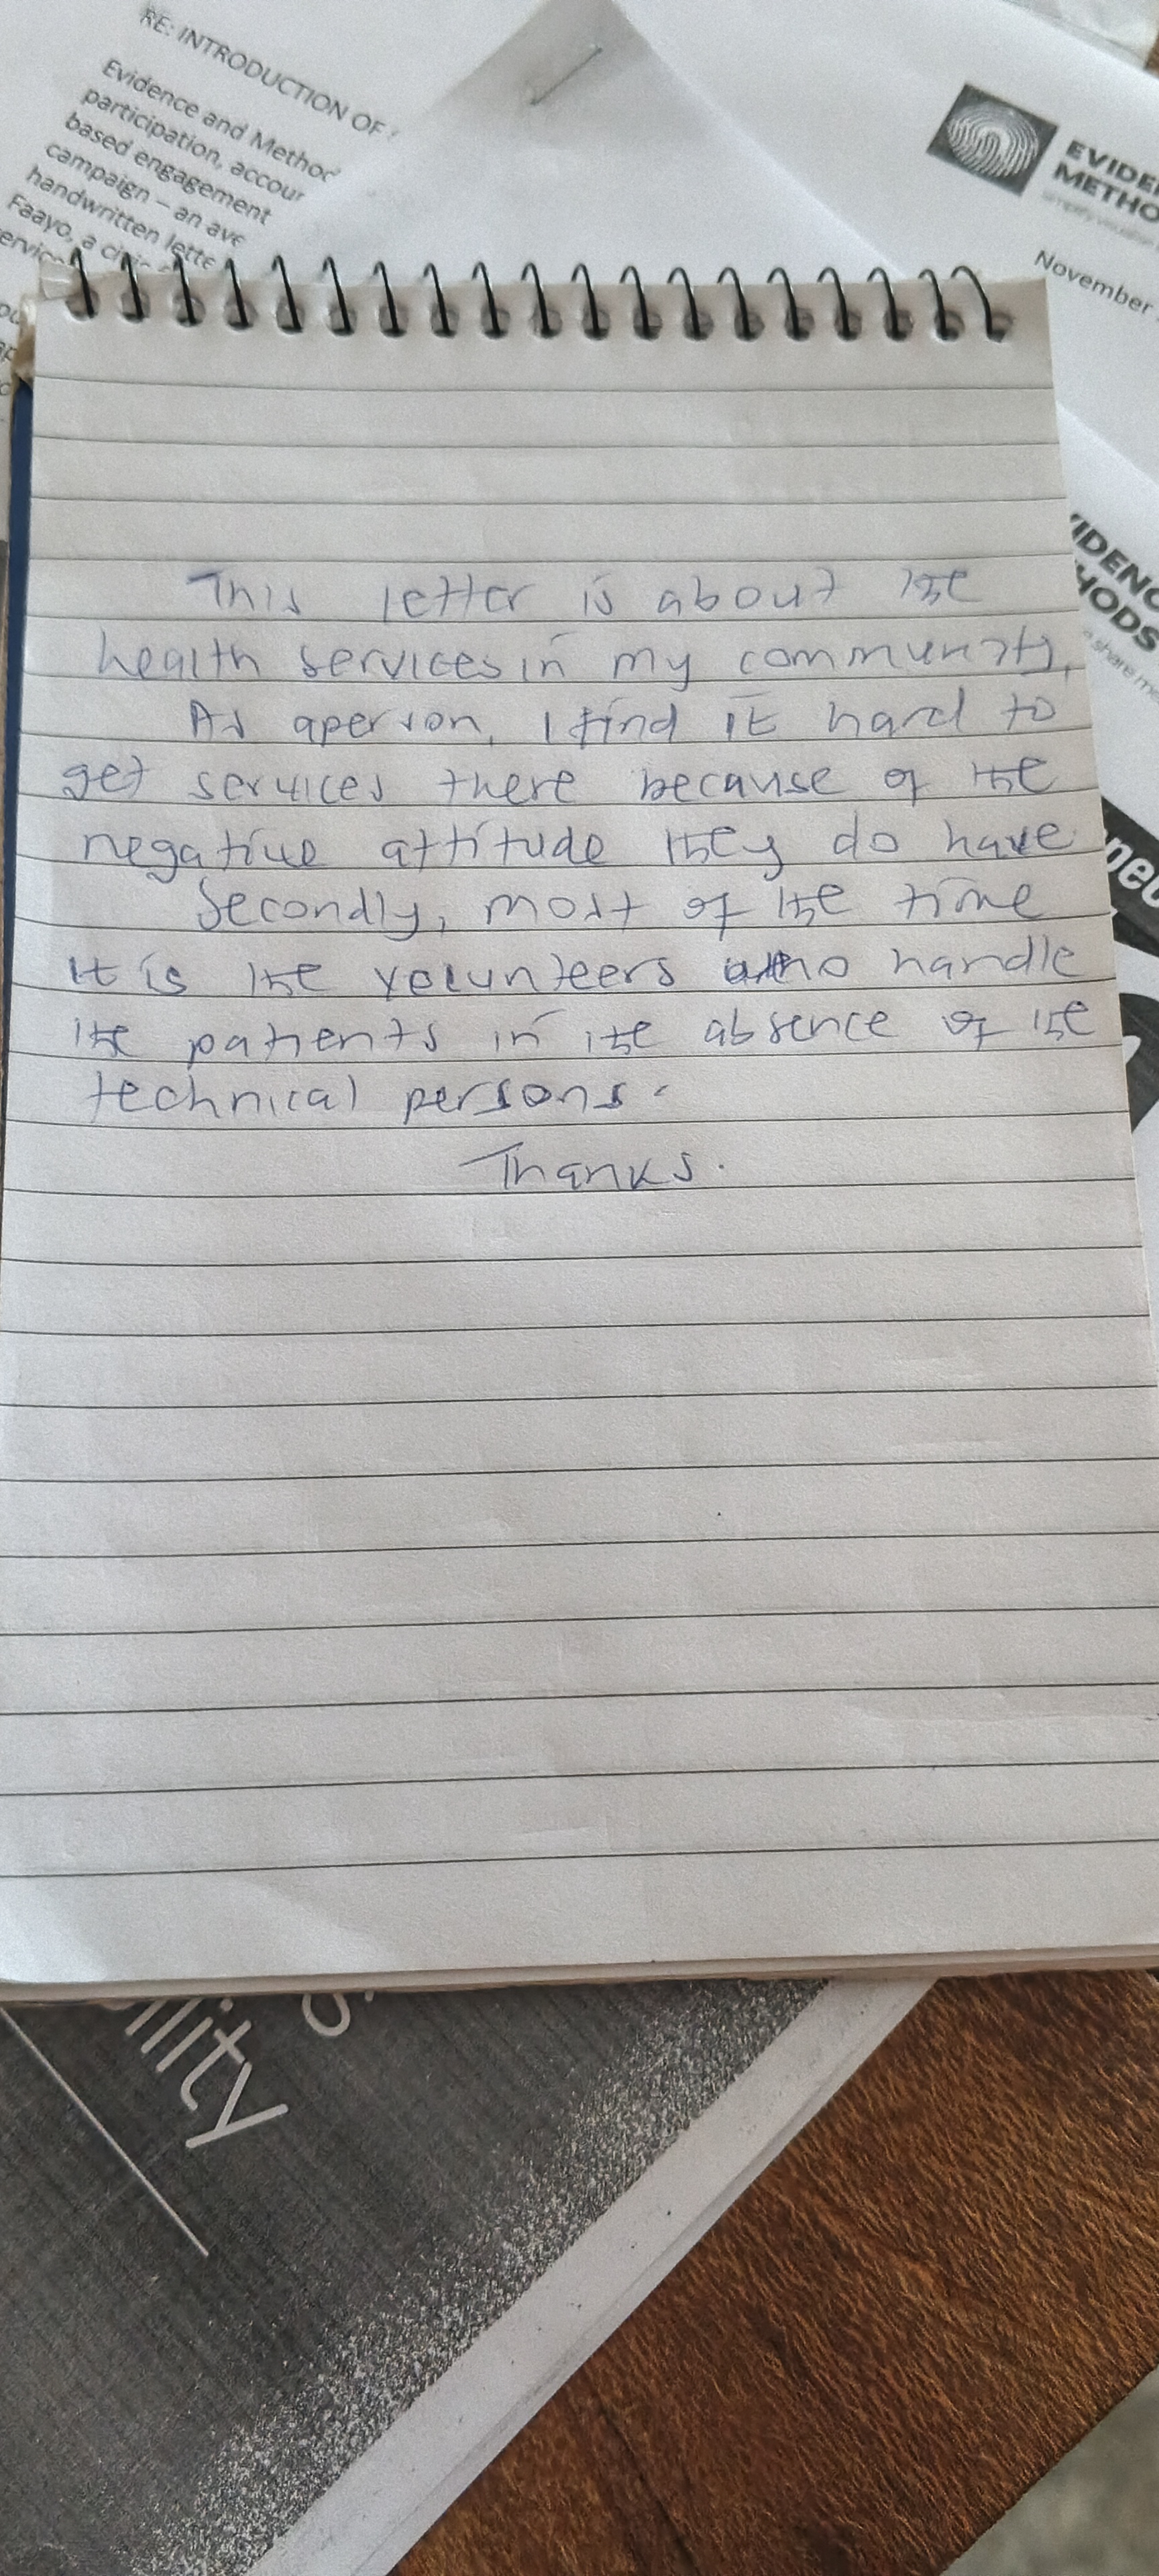 RE: INTRODUCTION OF
Evidence and Method
participation, accour
based engagement
campaign – an ave
handwritten lette
Faayo, a civic
EVIDE
METHO
November
IDENC
HODS
a share me
This letter is about the
health services in my community,
As aperson, I find it hard to
get services there because of the
negative attitude they do have
Secondly, most of the time
it is the volunteers who handle
the patients in the absence of the
technical persons.
Thanks.
ility